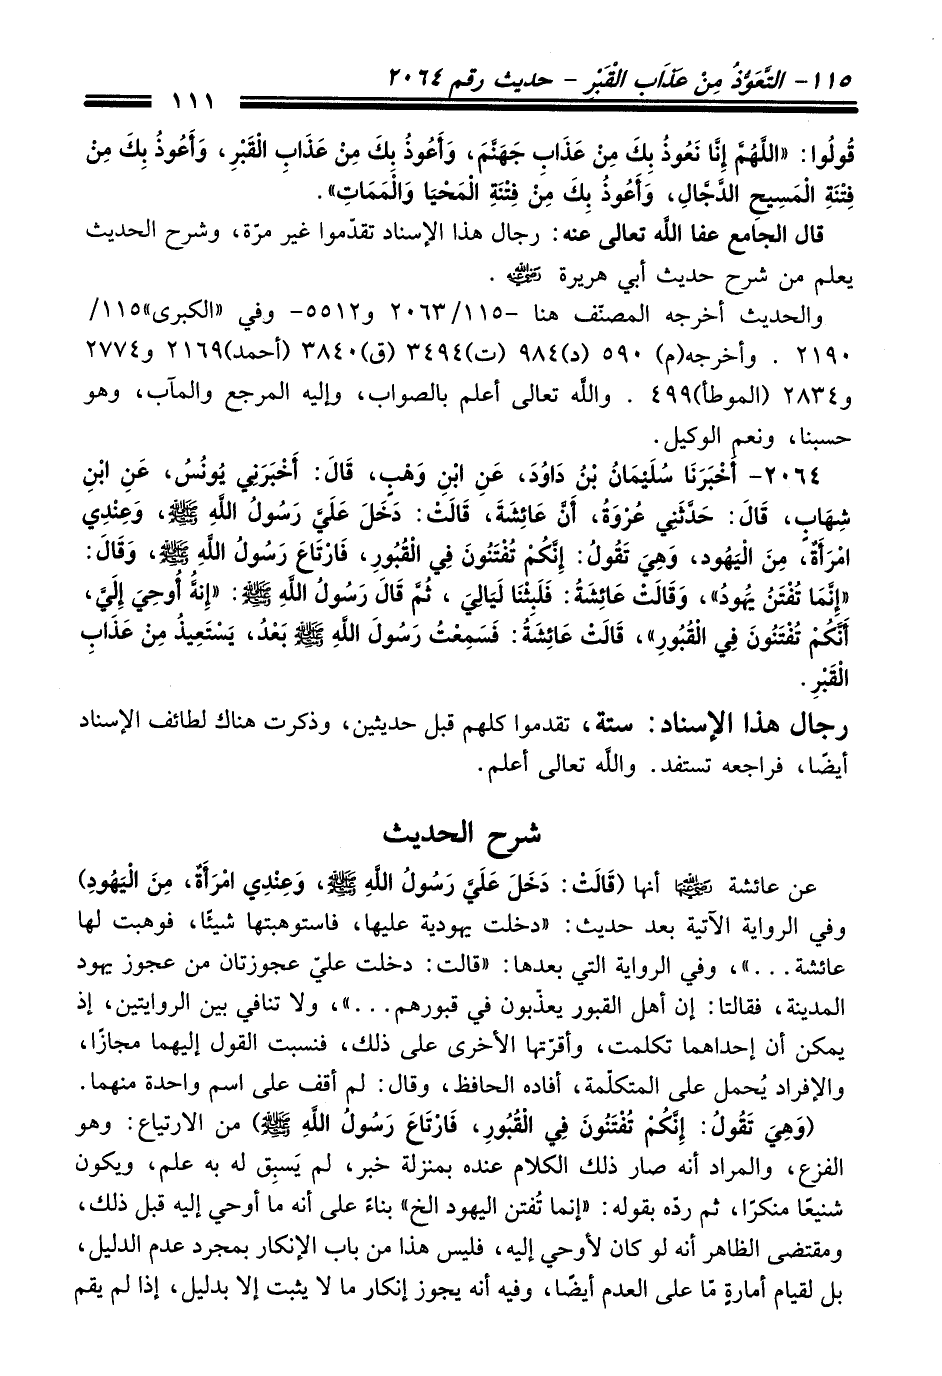 ١١٥- التَّعَوُّذُ مِنْ عَذَابِ الْقَبْرِ - حديث رقم ٢٠٦٤
١١١
قُولُوا: «اللَّهُمَّ إِنَّا نَعُوذُ بِكَ مِنْ عَذَابِ جَهَنَّمَ، وَأَعُوذُ بِكَ مِنْ عَذَابِ الْقَبْرِ، وَأَعُوذُ بِكَ مِنْ
فِتْنَةِ الْمَسِيحِ الدَّجَّالِ، وَأَعُوذُ بِكَ مِنْ فِتْنَةِ الْمَحْيَا وَالْمَمَاتِ».
قال الجامع عفا اللَّه تعالى عنه: رجال هذا الإسناد تقدّموا غير مرّة، وشرح الحديث
يعلم من شرح حديث أبي هريرة رضي الله عنه .
والحديث أخرجه المصنّف هنا -٢٠٦٣/١١٥ و٥٥١٢- وفي «الكبرى»١١٥/
٢١٩٠ . وأخرجه(م) ٥٩٠ (د)٩٨٤ (ت)٣٤٩٤ (ق)٣٨٤٠ (أحمد)٢١٦٩ و٢٧٧٤
و٢٨٣٤ (الموطأ)٤٩٩ . واللَّه تعالى أعلم بالصواب، وإليه المرجع والمآب، وهو
حسبنا، ونعم الوكيل.
٢٠٦٤- أَخْبَرَنَا سُلَيْمَانُ بْنُ دَاوُدَ، عَنِ ابْنِ وَهْبٍ، قَالَ: أَخْبَرَنِي يُونُسُ، عَنِ ابْنِ
شِهَابٍ، قَالَ: حَدَّثَنِي عُرْوَةُ، أَنَّ عَائِشَةَ، قَالَتْ: دَخَلَ عَلَيَّ رَسُولُ اللَّهِ ﷺ، وَعِنْدِي
امْرَأَةٌ، مِنَ الْيَهُودِ، وَهِيَ تَقُولُ: إِنَّكُمْ تُفْتَنُونَ فِي الْقُبُورِ، فَارْتَاعَ رَسُولُ اللَّهِ ﷺ، وَقَالَ:
«إِنَّمَا تُفْتَنُ يَهُودُ»، وَقَالَتْ عَائِشَةُ: فَلَبِثْنَا لَيَالِيَ ، ثُمَّ قَالَ رَسُولُ اللَّهِ ﷺ: «إِنَّهُ أُوحِيَ إِلَيَّ،
أَنَّكُمْ تُفْتَنُونَ فِي الْقُبُورِ»، قَالَتْ عَائِشَةُ: فَسَمِعْتُ رَسُولَ اللَّهِ ﷺ بَعْدُ، يَسْتَعِيذُ مِنْ عَذَابِ
الْقَبْرِ.
رجال هذا الإسناد: ستة، تقدموا كلهم قبل حديثين، وذكرت هناك لطائف الإسناد
أيضًا، فراجعه تستفد. واللَّه تعالى أعلم.
شرح الحديث
عن عائشة رضي الله عنها أنها (قَالَتْ: دَخَلَ عَلَيَّ رَسُولُ اللَّهِ ﷺ، وَعِنْدِي امْرَأَةٌ، مِنَ الْيَهُودِ)
وفي الرواية الآتية بعد حديث: «دخلت يهودية عليها، فاستوهبتها شيئًا، فوهبت لها
عائشة...»، وفي الرواية التي بعدها: «قالت: دخلت عليّ عجوزتان من عجوز يهود
المدينة، فقالتا: إن أهل القبور يعذّبون في قبورهم...»، ولا تنافي بين الروايتين، إذ
يمكن أن إحداهما تكلمت، وأقرّتها الأخرى على ذلك، فنسبت القول إليهما مجازًا،
والإفراد يُحمل على المتكلّمة، أفاده الحافظ، وقال: لم أقف على اسم واحدة منهما.
(وَهِيَ تَقُولُ: إِنَّكُمْ تُفْتَنُونَ فِي الْقُبُورِ، فَارْتَاعَ رَسُولُ اللَّهِ ﷺ) من الارتياع: وهو
الفزع، والمراد أنه صار ذلك الكلام عنده بمنزلة خبر، لم يَسبِق له به علم، ويكون
شنيعًا منكرًا، ثم ردّه بقوله: «إنما تُفتن اليهود الخ» بناءً على أنه ما أوحي إليه قبل ذلك،
ومقتضى الظاهر أنه لو كان لأوحي إليه، فليس هذا من باب الإنكار بمجرد عدم الدليل،
بل لقيام أمارةٍ مّا على العدم أيضًا، وفيه أنه يجوز إنكار ما لا يثبت إلا بدليل، إذا لم يقم